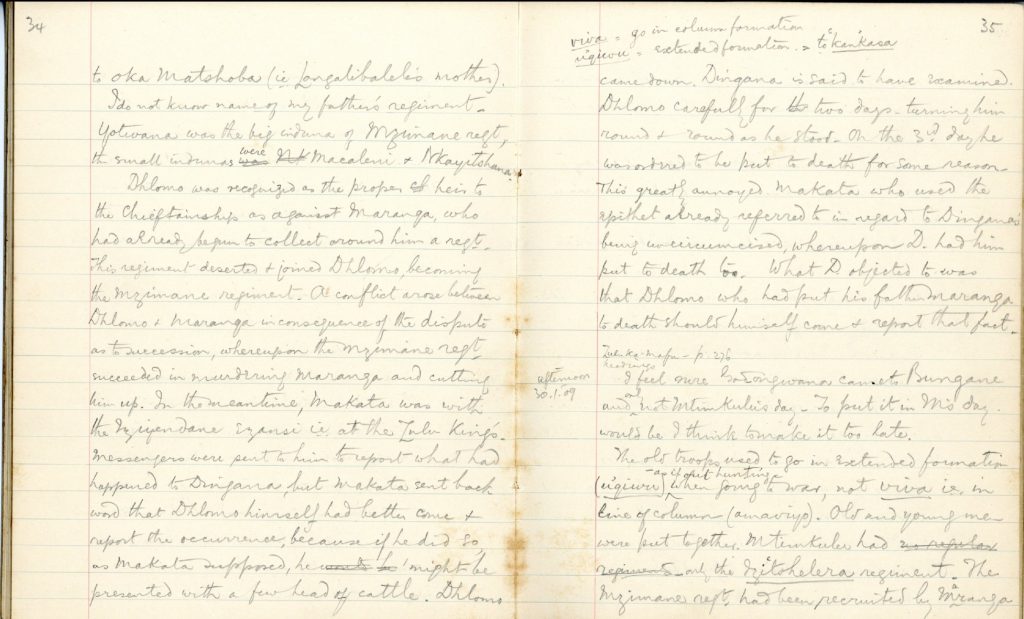 34
to oka Matshoba (ie Langalibalele's mother).
I do not know name of my father's regiment.
Yotwana was the big induna of Mzimane regt,
the small indunas were Macaleni & Nkayitshana.
Dhlomo was recognized as the proper heir to
the Chieftainship as against Maranga, who
had already begun to collect around him a regt.
This regiment deserted & joined Dhlomo, becoming
the Mzimane regiment. A conflict arose between
Dhlomo & Maranga in consequence of the dispute
as to succession, whereupon the Mzimane regt
succeeded in murdering Maranga and cutting
him up. In the meantime, Makata was with
the Iziyendane Ezansi i.e. at the Zulu King's.
Messengers were sent to him to report what had
happened to Dingana, but Makata sent back
word that Dhlomo himself had better come &
report the occurrence, because if he did so,
as Makata supposed, he might be
presented with a few head of cattle. Dhlomo
35
viva = go in column formation
uqiwu = extended formation = to kankasa
came down. Dingana is said to have examined
Dhlomo carefully for two days - turning him
round & round as he stood. On the 3rd day he
was ordered to be put to death for some reason.
This greatly annoyed Makata who used the
epithet already referred to in regard to Dingana's
being uncircumcised, whereupon D. had him
put to death too. What D objected to was
that Dhlomo who had put his father Maranga
to death should himself come & report that fact.
p. 276
afternoon
30.1.09
I feel sure Godongwana came to Bungane
and not Mtimkulu's day. To put it in M's day
would be I think to make it too late.
The old troops used to go in extended formation
- as if out hunting -
(uqiwu) when going to war, not viva i.e. in
line of column (amaviyo). Old and young men
were put together. Mtimkulu had no regular
regiments - only the Izitohelera regiment. The
Mzimane regt. had been recruited by Maranga